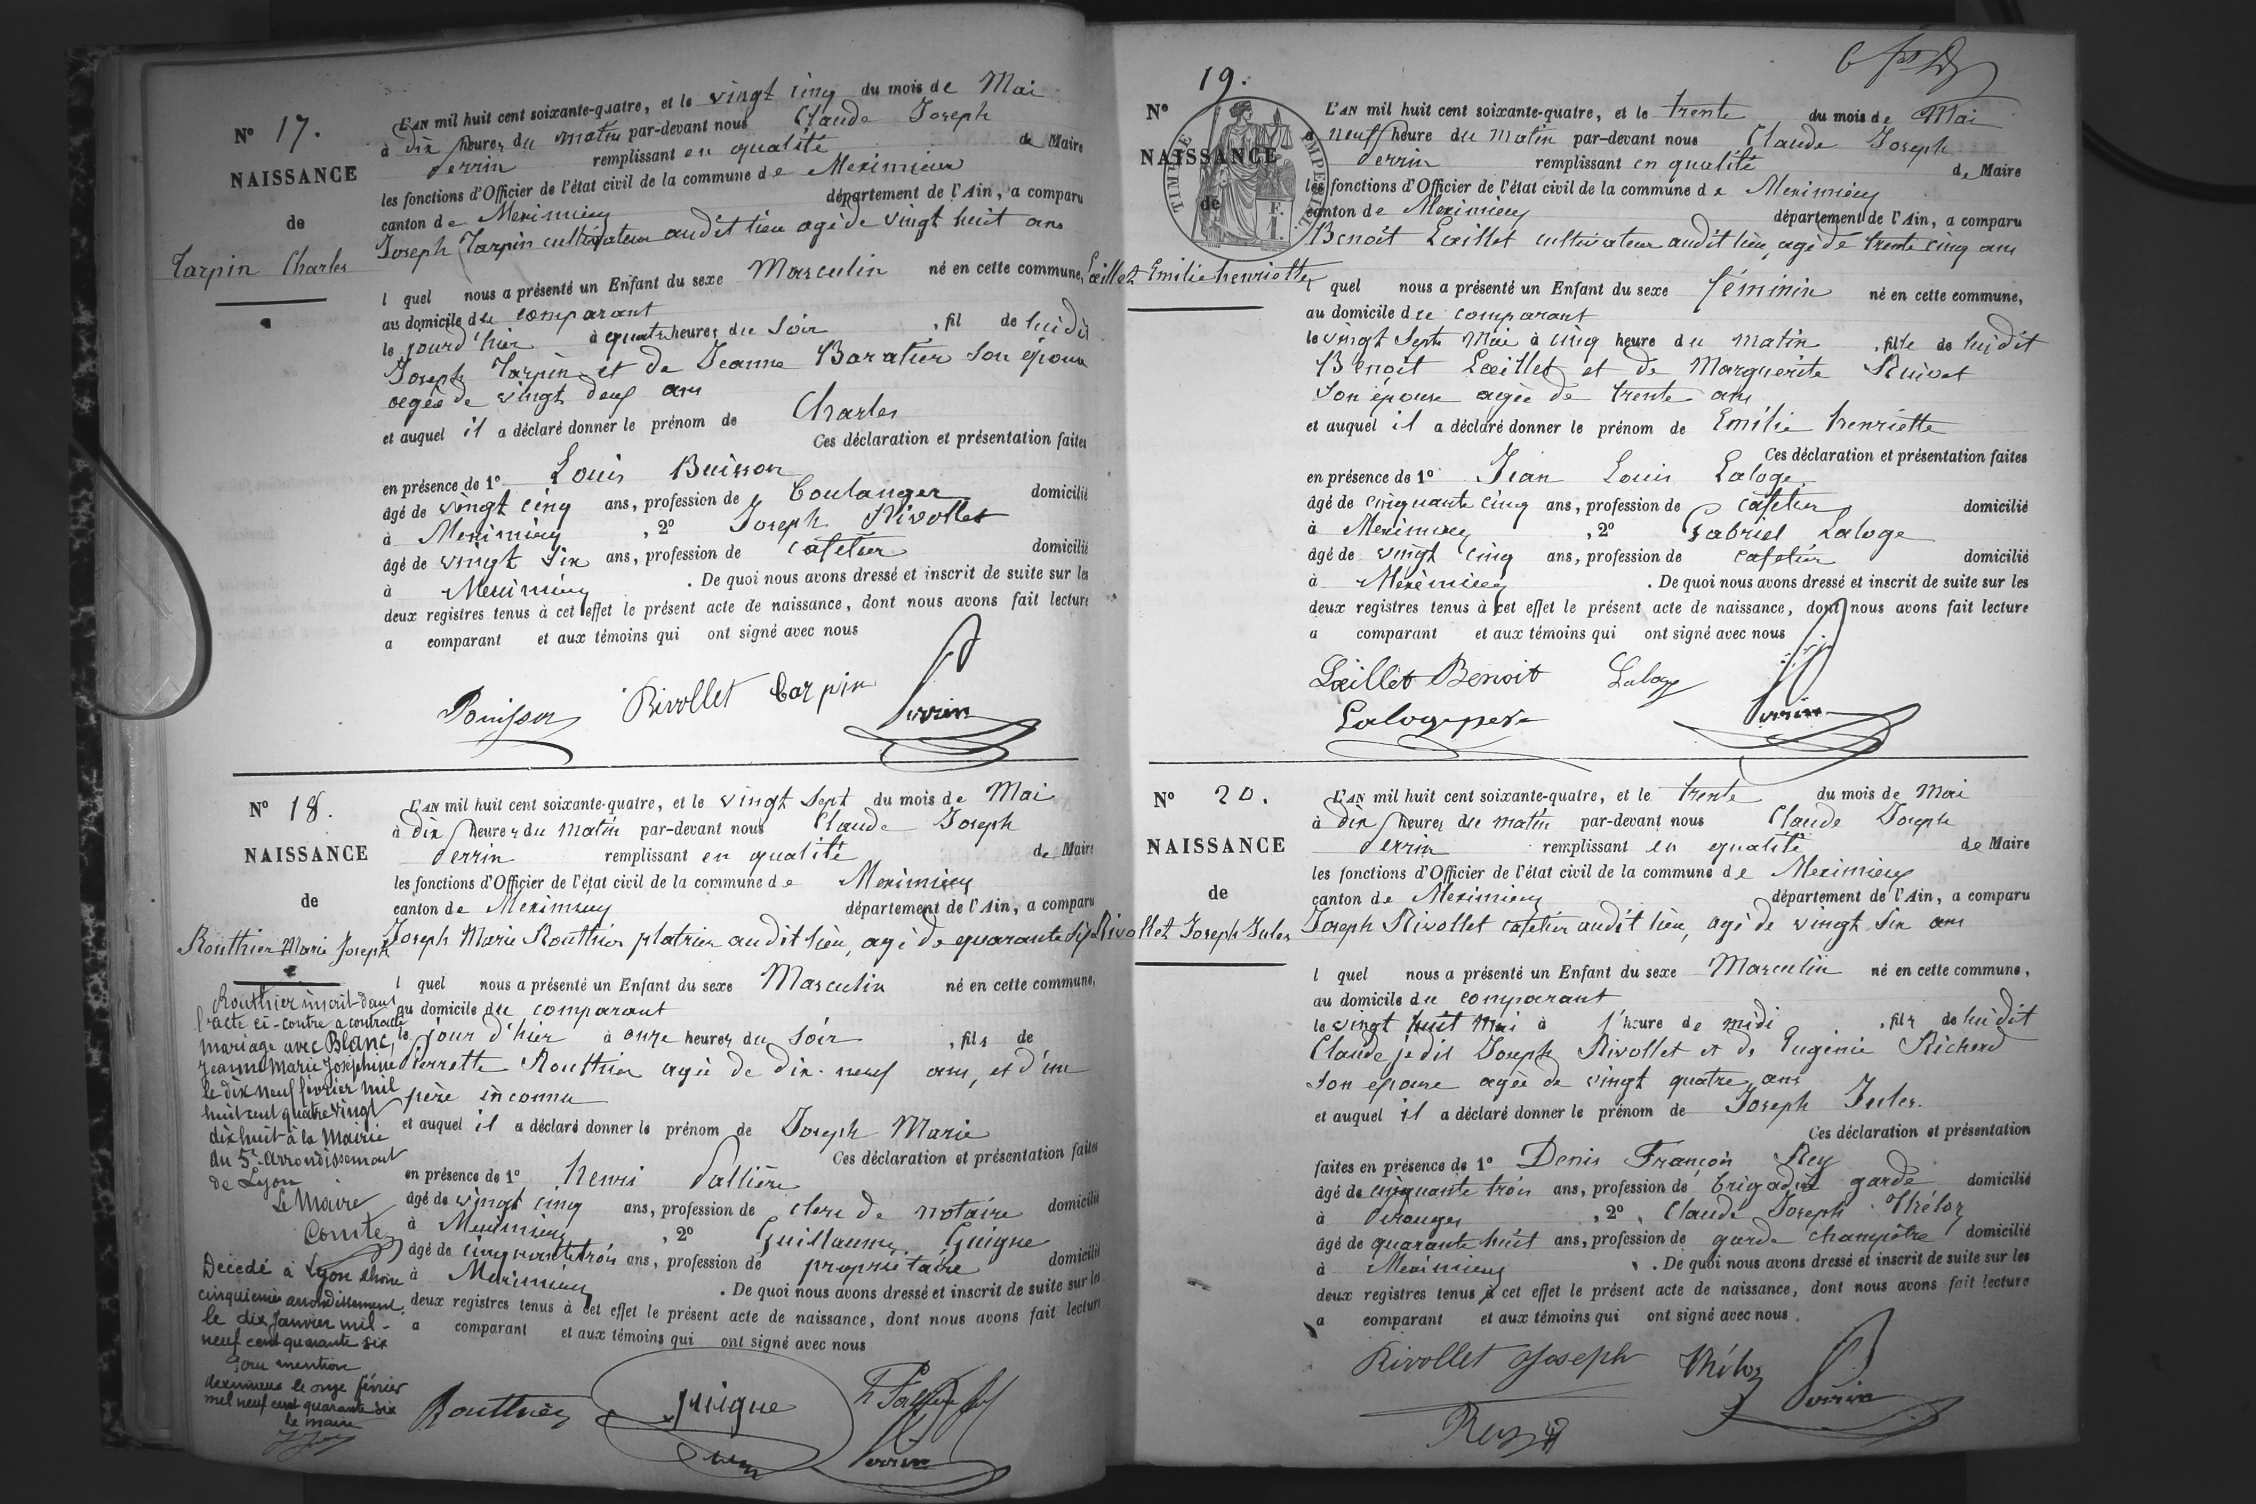 N° 17.
NAISSANCE
de
Tarpin Charles
L'AN mil huit cent soixante-quatre, et le vingt cinq du mois de Mai
à dix heures du matin par-devant nous Claude Joseph
Perrin remplissant en qualité de Maire
les fonctions d'Officier de l'état civil de la commune de Meximieux
canton de Meximieux département de l'Ain, a comparu
Joseph Tarpin cultivateur audit lieu agé de vingt huit ans
l quel nous a présenté un Enfant du sexe Masculin né en cette commune,
au domicile du comparant
le jourd'hier à quatre heures du soir , fil de lui dit
Joseph Tarpin et de Jeanne Baratier son épouse
agée de vingt deux ans
et auquel il a déclaré donner le prénom de Charles
Ces déclaration et présentation faites
en présence de 1° Louis Buisson
âgé de vingt cinq ans, profession de Boulanger domicilié
à Meximieux , 2° Joseph Rivollet
âgé de vingt six ans, profession de cafetier domicilié
à Meximieux . De quoi nous avons dressé et inscrit de suite sur les
deux registres tenus à cet effet le présent acte de naissance, dont nous avons fait lecture
a comparant et aux témoins qui ont signé avec nous
Bouisson Rivollet Tarpin Perrin
N° 18.
NAISSANCE
de
Routhier Marie Joseph
Routhier inscrit dans
l'acte ci-contre a contracté
mariage avec Blanc,
Jeanne Marie Joséphine
le dix neuf février mil
huit cent quatre vingt
dix huit à la Mairie
du 5e arrondissement
de Lyon
Le Maire
Comte
Décédé à Lyon Rhône
cinquième arrondissement
le dix Janvier mil-
neuf cent quarante six
Pour mention
Meximieux le onze février
mil neuf cent quarante six
le maire
L'AN mil huit cent soixante-quatre, et le vingt sept du mois de Mai
à dix heures du matin par-devant nous Claude Joseph
Perrin remplissant en qualité de Maire
les fonctions d'Officier de l'état civil de la commune de Meximieux
canton de Meximieux département de l'Ain, a comparu
Joseph Marie Routhier platrier audit lieu, agé de quarante six
l quel nous a présenté un Enfant du sexe Masculin né en cette commune,
au domicile du comparant
le jour d'hier à onze heures du soir , fils de
Pierrette Routhier agée de dix-neuf ans, et d'un
père inconnu
et auquel il a déclaré donner le prénom de Joseph Marie
Ces déclaration et présentation faites
en présence de 1° henri Pallière
âgé de vingt cinq ans, profession de clerc de notaire domicilié
à Meximieux , 2° Guillaume Guigue
âgé de cinquante trois ans, profession de propriétaire domicilié
à Meximieux . De quoi nous avons dressé et inscrit de suite sur les
deux registres tenus à cet effet le présent acte de naissance, dont nous avons fait lecture
a comparant et aux témoins qui ont signé avec nous
Routhier Guigue Perrin
19.
N°
NAISSANCE
de
TIMBRE IMPERIAL
Lœillet Emilie henriette
L'AN mil huit cent soixante-quatre, et le trente du mois de Mai
à neuf heure du matin par-devant nous Claude Joseph
Perrin remplissant en qualité de Maire
les fonctions d'Officier de l'état civil de la commune de Meximieux
canton de Meximieux département de l'Ain, a comparu
Benoit Lœillet cultivateur audit lieu, agé de trente cinq ans
l quel nous a présenté un Enfant du sexe féminin né en cette commune,
au domicile du comparant
le vingt sept Mai à cinq heure du matin , fille de lui dit
Benoit Lœillet et de Marguerite Ruivet
son épouse agée de trente ans
et auquel il a déclaré donner le prénom de Emilie henriette
Ces déclaration et présentation faites
en présence de 1° Jean Louis Laloge
âgé de cinquante cinq ans, profession de cafetier domicilié
à Meximieux , 2° Gabriel Laloge
âgé de vingt cinq ans, profession de cafetier domicilié
à Meximieux . De quoi nous avons dressé et inscrit de suite sur les
deux registres tenus à cet effet le présent acte de naissance, dont nous avons fait lecture
a comparant et aux témoins qui ont signé avec nous
Lœillet Benoit Laloge
Laloge pere Perrin
N° 20.
NAISSANCE
de
Rivollet Joseph Jules
L'AN mil huit cent soixante-quatre, et le trente du mois de Mai
à dix heures du matin par-devant nous Claude Joseph
Perrin remplissant en qualité de Maire
les fonctions d'Officier de l'état civil de la commune de Meximieux
canton de Meximieux département de l'Ain, a comparu
Joseph Rivollet cafetier audit lieu, agé de vingt six ans
l quel nous a présenté un Enfant du sexe Masculin né en cette commune,
au domicile du comparant
le vingt huit Mai à l'heure de midi , fils de lui dit
Claude je dis Joseph Rivollet et de Eugénie Richerd
son épouse agée de vingt quatre ans
et auquel il a déclaré donner le prénom de Joseph Jules.
Ces déclaration et présentation
faites en présence de 1° Denis François Rey
âgé de cinquante trois ans, profession de brigadier garde domicilié
à Perouges , 2° Claude Joseph Théloz
âgé de quarante huit ans, profession de garde champêtre domicilié
à Meximieux . De quoi nous avons dressé et inscrit de suite sur les
deux registres tenus à cet effet le présent acte de naissance, dont nous avons fait lecture
a comparant et aux témoins qui ont signé avec nous.
Rivollet Joseph Théloz Perrin
Rey